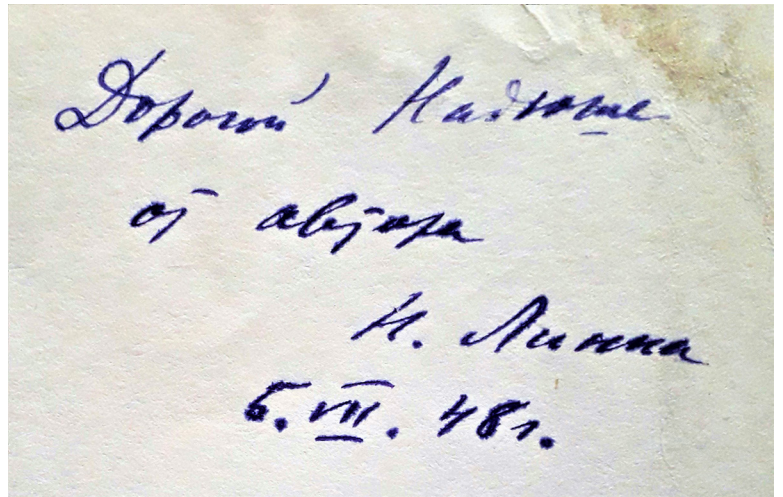 Дорогой Надюше
от автора
Н. Линка
5.VII.48г.